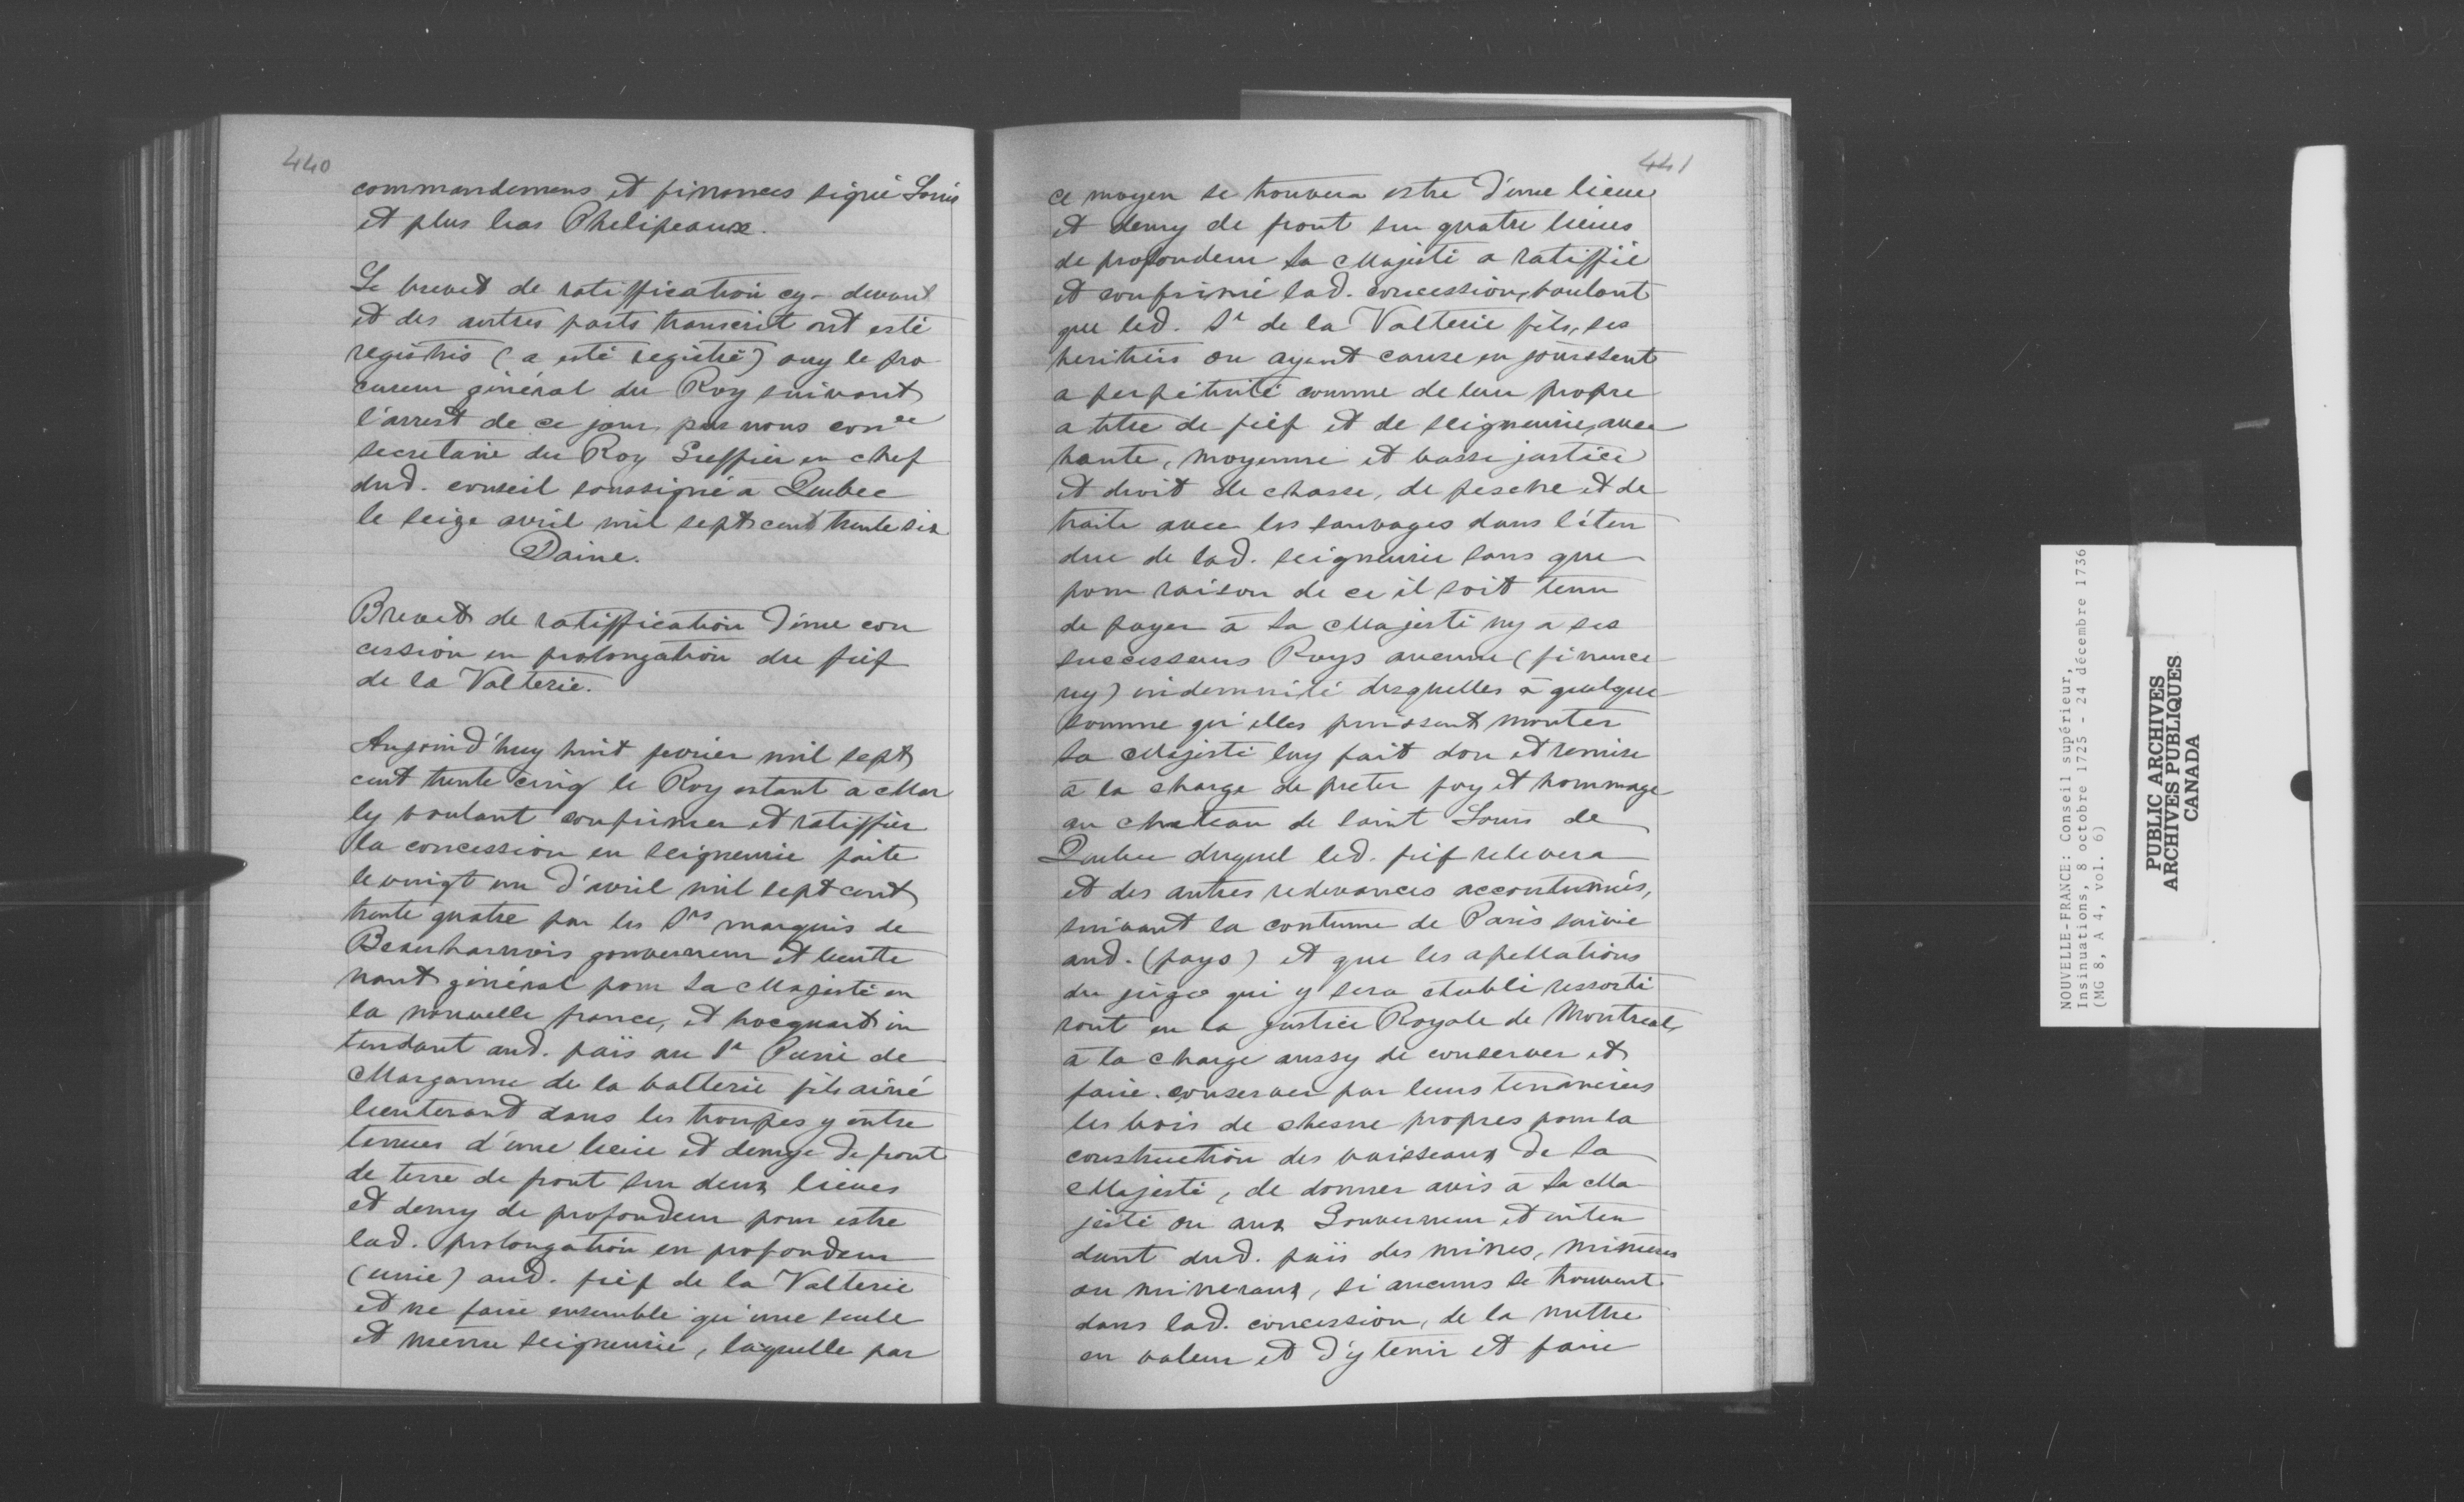 440
commandemens et finances signé Louis
et plus bas Phelipeaux.
Le brevet de ratiffication cy-devant
et des autres parts transcrit ont esté
registrés (a esté registré) ouy le pro
cureur général du Roy suivant
l'arrest de ce jour par nous con er
secretaire du Roy Greffier en chef
dud. conseil soussigné à Quebec
le seize avril mil sept cent trente six
Daine.
Brevet de ratiffication d'une con
cession en prolongation du fief
de la Valterie.
Aujourd'huy huit fevrier mil sept
cent trente cinq le Roy estant à Mar
ly voulant confirmer et ratiffier
la concession en seigneurie faite
le vingt un d'avril mil sept cent
trente quatre par les Srs marquis de
Beauharnois gouverneur et lieute
nant général pour Sa Majesté en
la nouvelle france, et hocquart in
tendant aud. païs au Sr Pierre de
Marganne de la valterie fils ainé
lieutenant dans les troupes y entre
tenues d'une lieue et demye de front
de terre de front sur deux lieues
et demy de profondeur pour estre
lad. prolongation en profondeur
(unie) aud. fief de la Valterie
et ne faire ensemble qu'une seule
et meme seigneurie, laquelle par
441
ce moyen se trouvera estre d'une lieue
et demy de front sur quatre lieues
de profondeur Sa Majesté a ratiffié
et confirmé lad. concession, voulant
que led. Sr de la Valterie fils, ses
heritiers ou ayant cause en jouissent
a perpétuité comme de leur propre
a titre de fief et de seigneurie, avec
haute, moyenne et basse justice
et droit de chasse, de pesche et de
traite avec les sauvages dans l'éten
due de lad. seigneurie sans que
pour raison de ce il soit tenu
de payer à Sa Majesté ny a ses
successeurs Roys aucune (finance
ny) indemnité desquelles à quelque
somme qu'elles puissent monter
Sa Majesté luy fait don et remise
à la charge de preter foy et hommage
au chateau de Saint Louis de
Quebec duquel led. fief relevera
et des autres redevances accoutumés,
suivant la coutume de Paris suivie
aud. (pays) et que les apellations
du juge qui y sera établi ressorti
ront en la justice Royale de Montreal,
à la charge aussy de conserver et
faire conserver par leurs tenanciers
les bois de chesne propres pour la
construction des vaisseaux de Sa
Majesté, de donner avis à Sa Ma
jesté ou aux Gouverneur et inten
dant dud. païs des mines, minieres
ou mineraux, si aucuns se trouvent
dans lad. concession, de la mettre
en valeur et d'y tenir et faire
NOUVELLE-FRANCE: Conseil supérieur,
Insinuations, 8 octobre 1725 - 24 décembre 1736
(MG 8, A 4, vol. 6)
PUBLIC ARCHIVES
ARCHIVES PUBLIQUES
CANADA